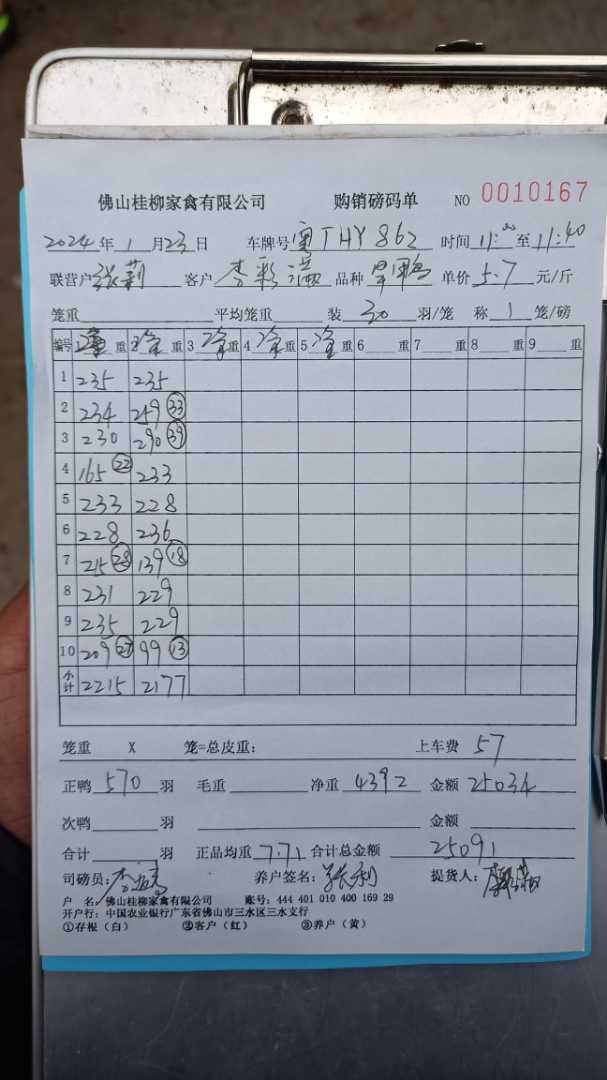 佛山桂柳家禽有限公司 购销磅码单 NO 0010167
2024年1月23日 车牌号 THY862 时间11:00至11:40
联营户张莉 客户李彩 品种 单价5.7元/斤
笼重 平均笼重 装30羽/笼 称1笼/磅
编号 1 重 2 重 3 重 4 重 5 重 6 重 7 重 8 重 9 重
1 235 235
2 234 259 33
3 230 290 39
4 165 22 233
5 233 228
6 228 236
7 215 28 139 18
8 231 229
9 235 229
10 209 27 99 13
小计 2215 2177
笼重 X 笼=总皮重: 上车费 57
正鸭570羽 毛重 净重4392 金额25034
次鸭 羽 金额
合计 羽 正品均重7.71 合计总金额 25091
司磅员: 养户签名:张利 提货人:
户 名:佛山桂柳家禽有限公司 账号:444 401 010 400 169 29
开户行:中国农业银行广东省佛山市三水区三水支行
①存根(白) ②客户(红) ③养户(黄)